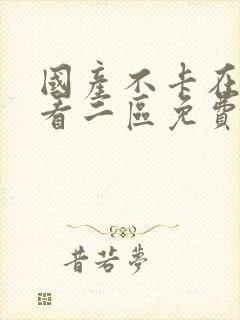 國產不卡在
看二區免費
昔若夢